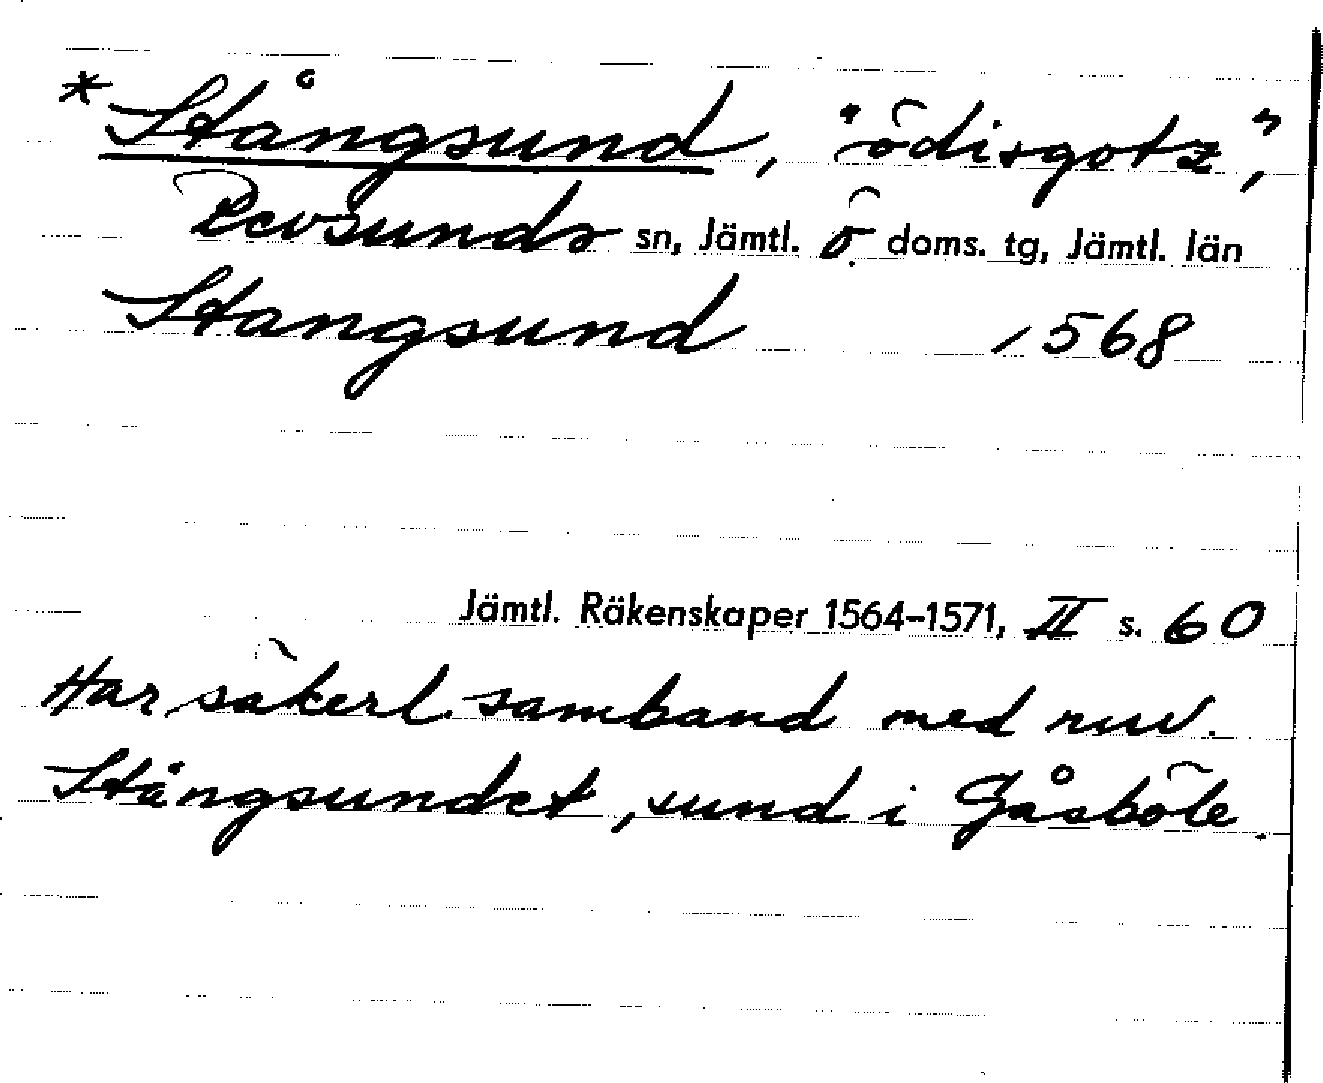 * Stångsund, "ödisgotz",
Revsunds sn, Jämtl. ö. doms. tg, Jämtl. län
Stangsund 1568
Jämtl. Räkenskaper 1564-1571, II s. 60
Har säkerl. samband med nuv.
Stångsundet, sund i Gåsböle.